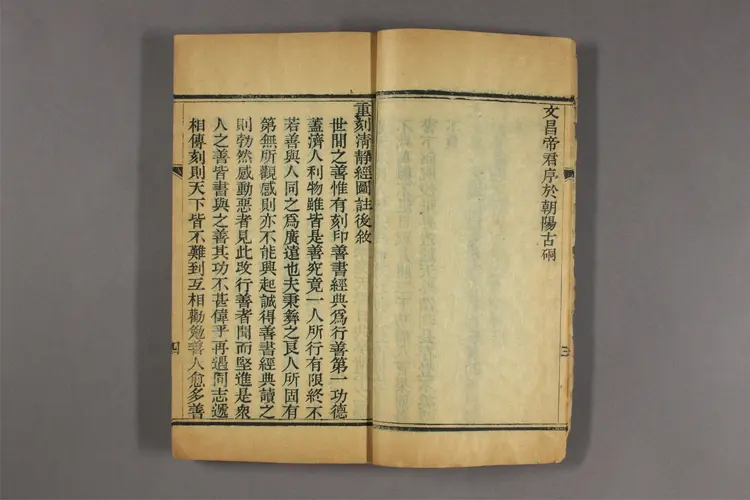 文昌帝君序於朝陽古硐
三
重刻清靜經圖註後敘
世間之善惟有刻印善書經典爲行善第一功德
蓋濟人利物雖皆是善究竟一人所行有限終不
若善與人同之爲廣遠也夫秉彝之良人所固有
第無所觀感則亦不能興起誠得善書經典讀之
則勃然感動惡者見此改行善者聞而堅進是衆
人之善皆書與之善其功不甚偉乎再遇同志遞
相傳刻則天下皆不難到互相勸勉善人愈多善
四